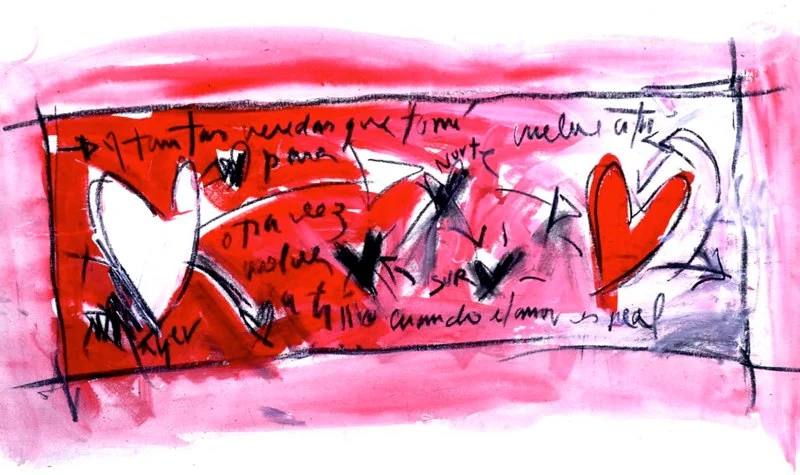 y tantas veredas que tomé
para
vuelve a ti
Norte
otra vez
volver
a ti
SUR
cuando el amor es real
ayer